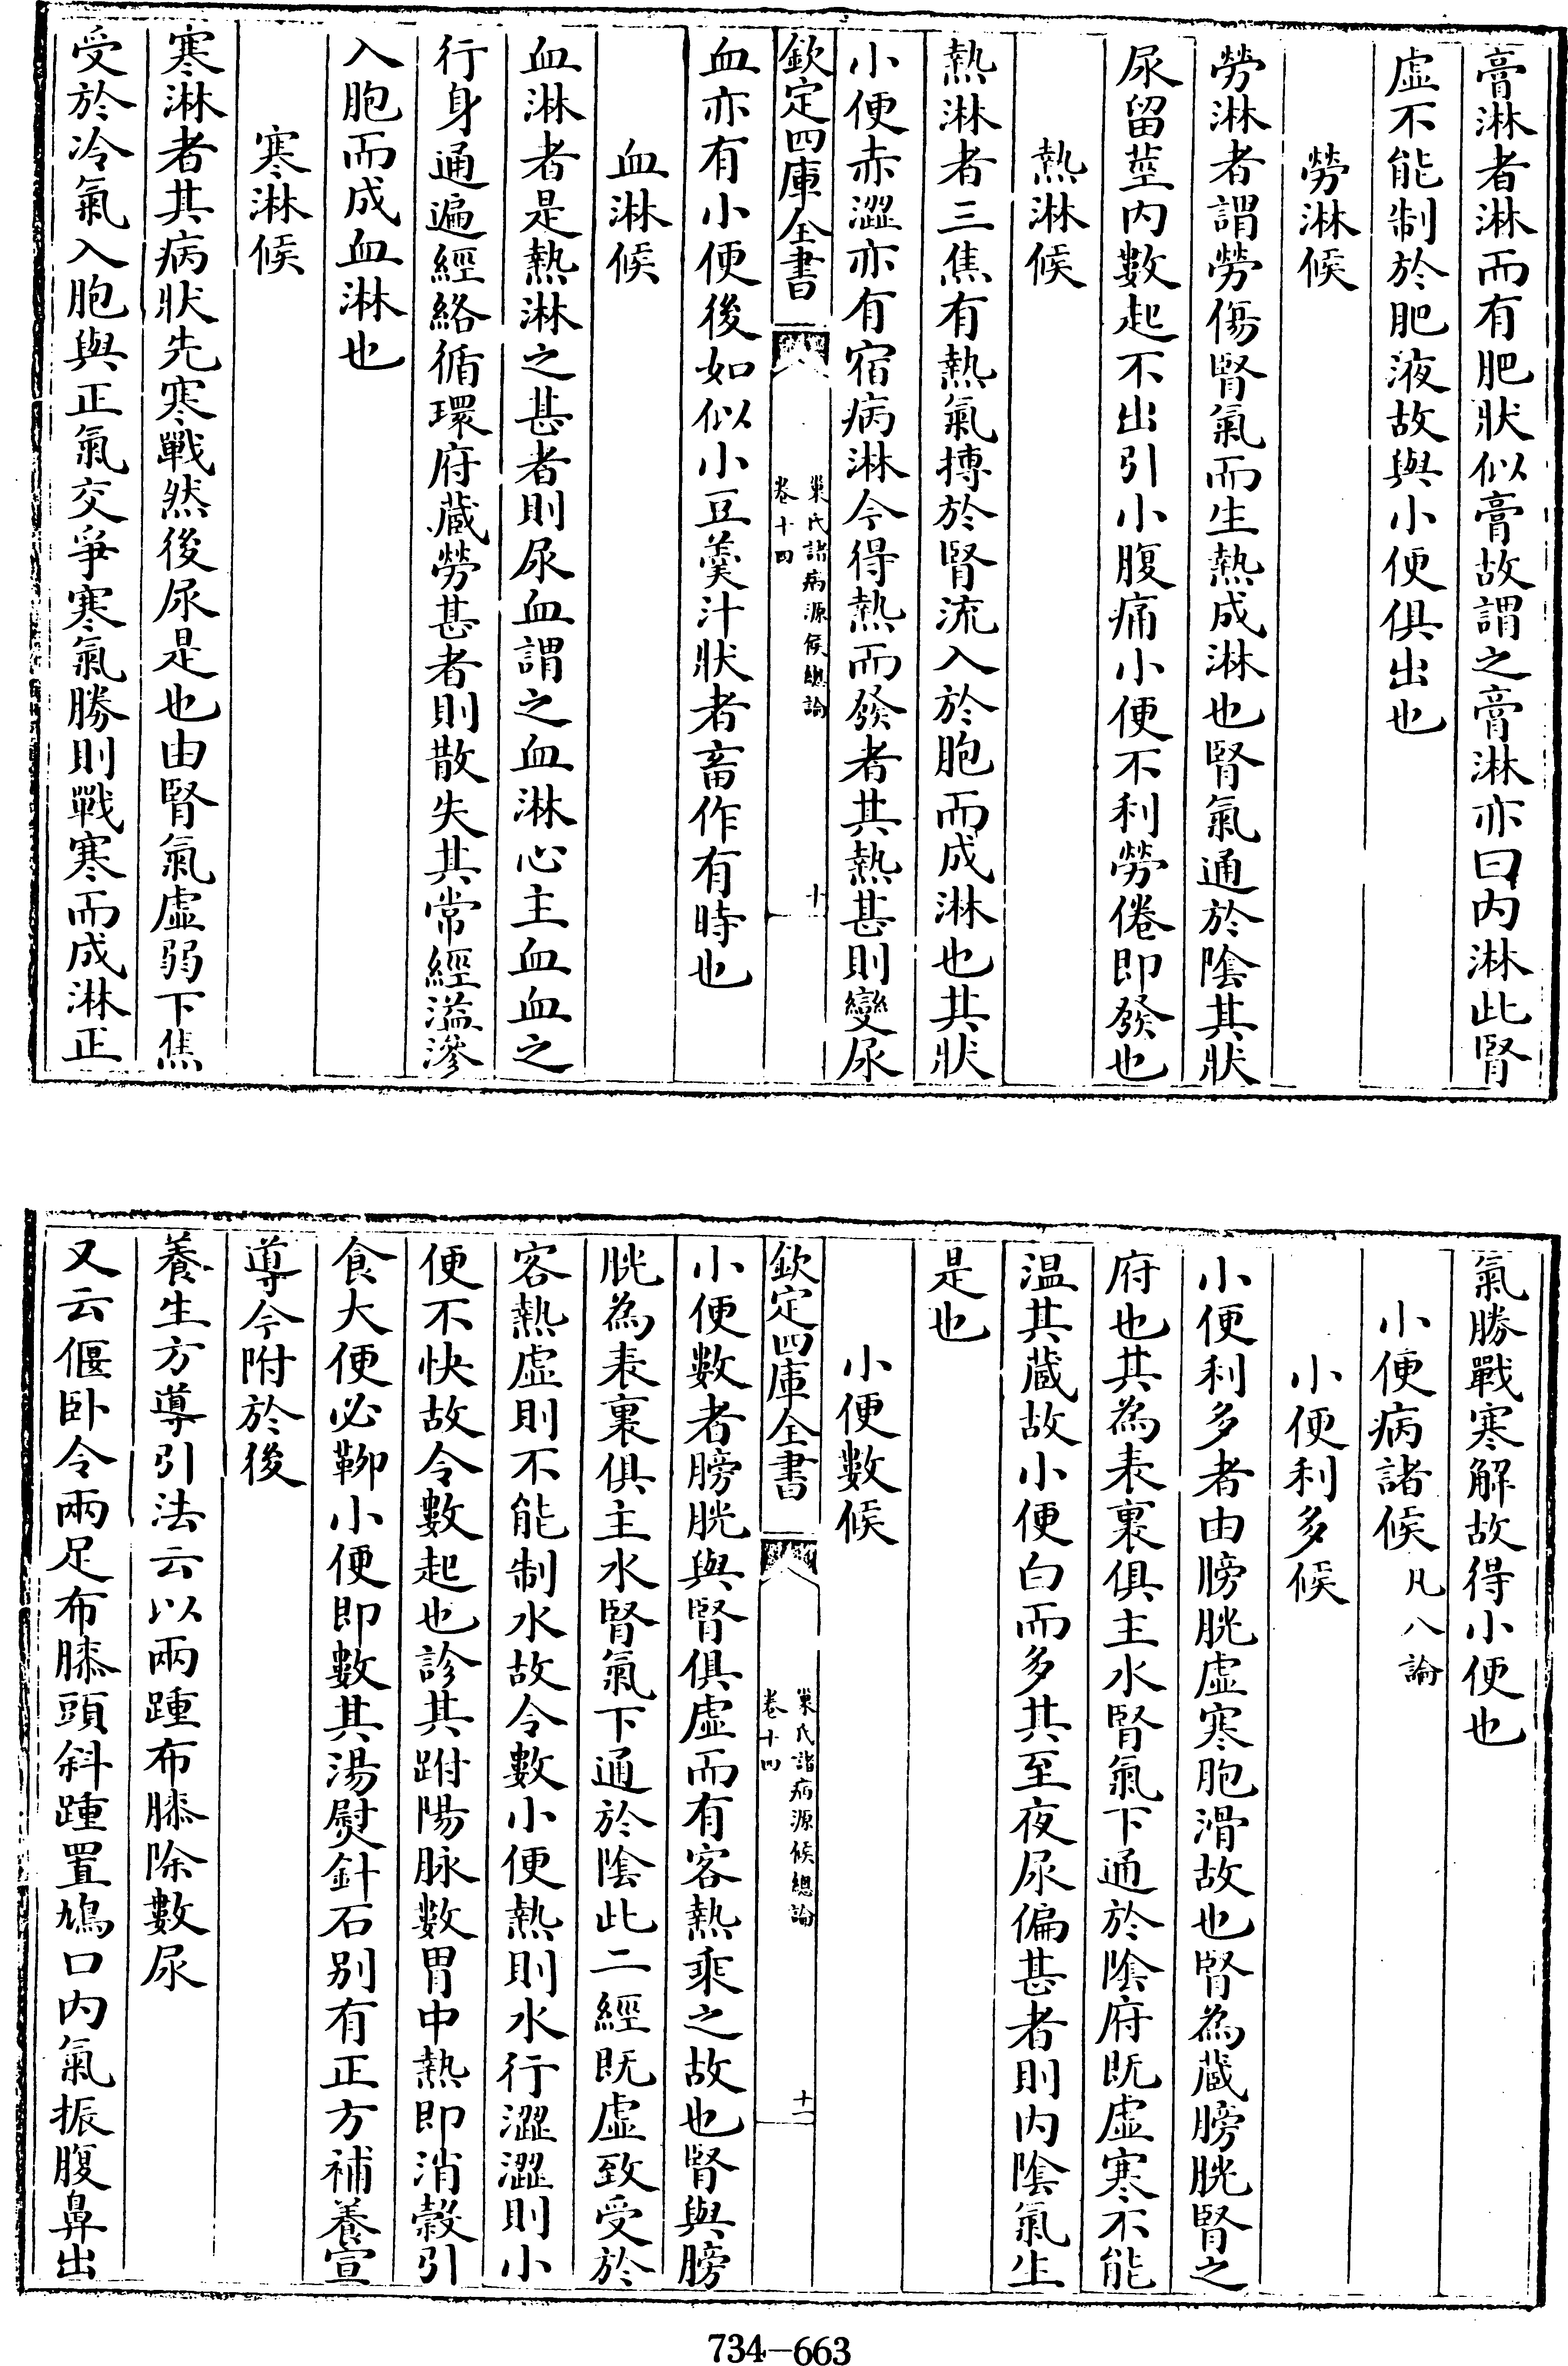 膏淋者淋而有肥狀似膏故謂之膏淋亦曰内淋此腎
虚不能制於肥液故與小便俱出也
勞淋候
勞淋者謂勞傷腎氣而生熱成淋也腎氣通於隂其狀
尿留莖内數起不出引小腹痛小便不利勞倦即發也
熱淋候
熱淋者三焦有熱氣摶於腎流入於胞而成淋也其狀
小便赤澀亦有宿病淋今得熱而發者其熱甚則變尿
欽定四庫全書
巢氏諸病源候總論
卷十四
十
血亦有小便後如似小豆羹汁狀者畜作有時也
血淋候
血淋者是熱淋之甚者則尿血謂之血淋心主血血之
行身通遍經絡循環府藏勞甚者則散失其常經溢滲
入胞而成血淋也
寒淋候
寒淋者其病狀先寒戰然後尿是也由腎氣虚弱下焦
受於冷氣入胞與正氣交爭寒氣勝則戰寒而成淋正
氣勝戰寒解故得小便也
小便病諸候凡八論
小便利多候
小便利多者由膀胱虚寒胞滑故也腎為藏膀胱腎之
府也其為表裏俱主水腎氣下通於隂府既虚寒不能
温其藏故小便白而多其至夜尿偏甚者則内隂氣生
是也
小便數候
欽定四庫全書
巢氏諸病源候總論
卷十四
十一
小便數者膀胱與腎俱虚而有客熱乘之故也腎與膀
胱為表裏俱主水腎氣下通於隂此二經既虚致受於
客熱虚則不能制水故令數小便熱則水行澀澀則小
便不快故令數起也診其跗陽脉數胃中熱即消穀引
食大便必鞕小便即數其湯熨針石别有正方補養宣
導今附於後
養生方導引法云以兩踵布膝除數尿
又云偃卧令兩足布膝頭斜踵置鳩口内氣振腹鼻出
734-663